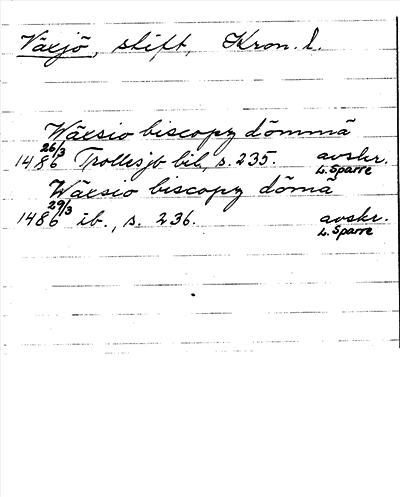 Växjö, stift, Kron. l.
Wäxsio biscopz dömmä
1486 26/3 Trollesjb bil, s. 235. avskr.
L. Sparre
Wäxsio biscopz döma
1486 29/3 ib., s. 236. avskr.
L. Sparre